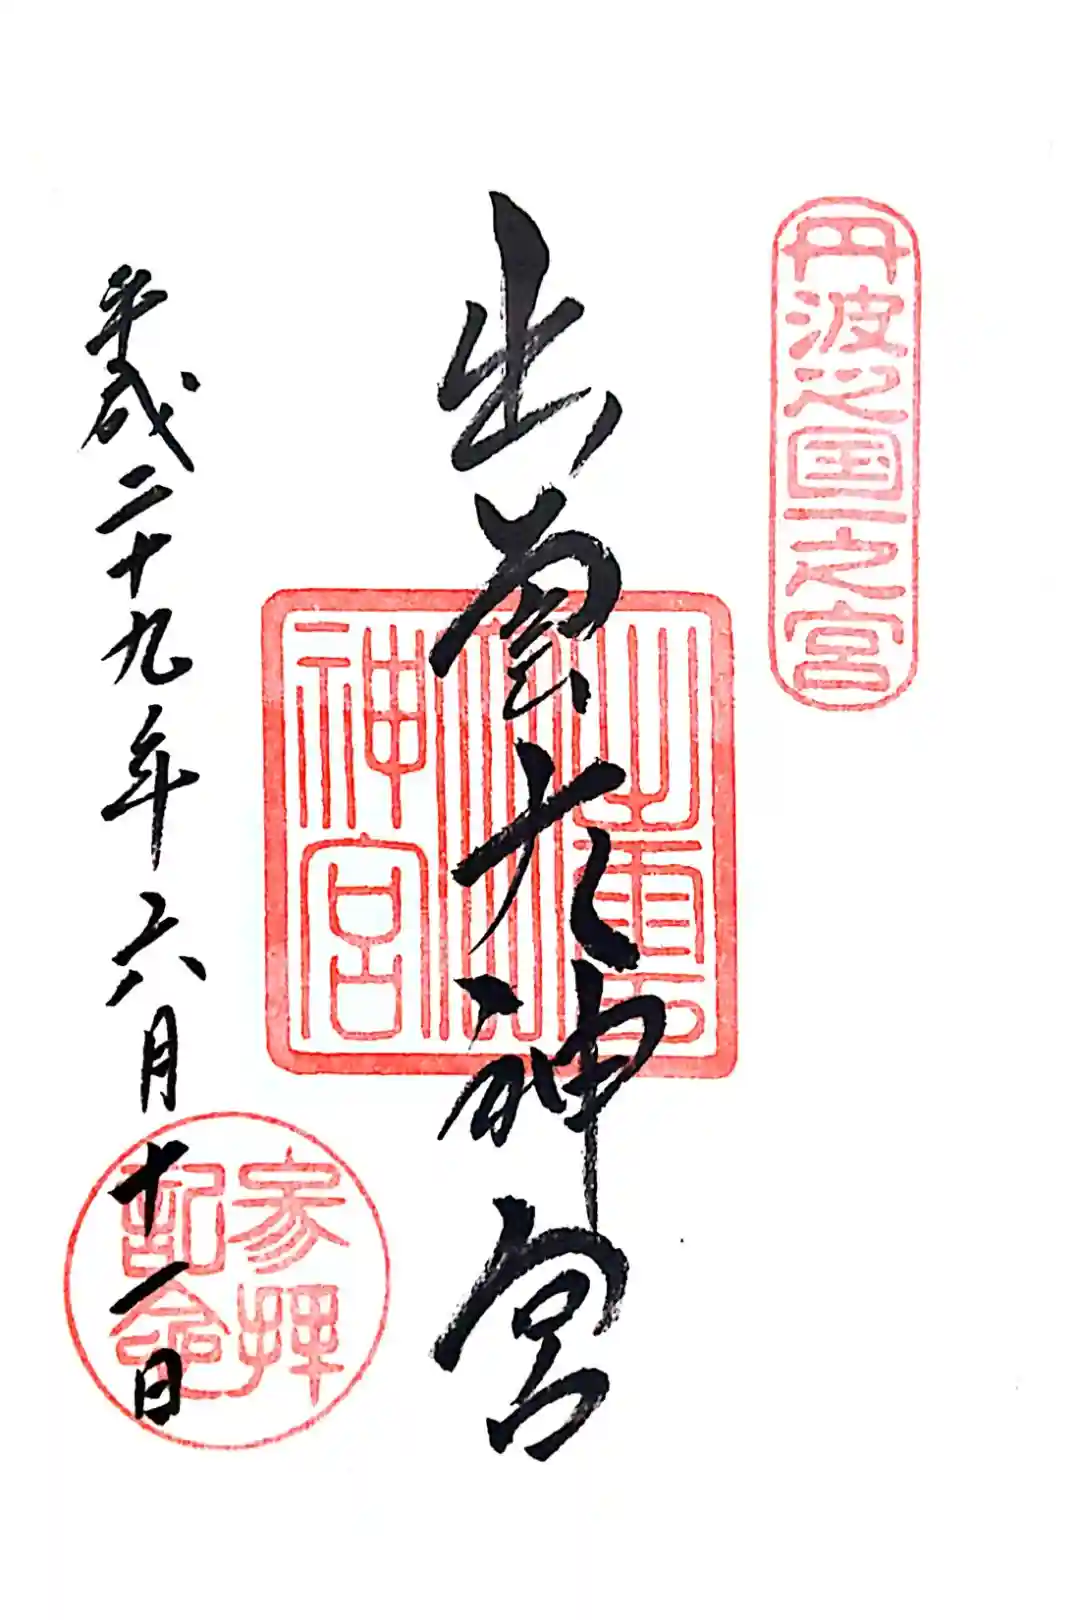 丹波之国一之宮
出雲大神宮
出雲大神宮
平成二十九年六月十一日
参拝記念